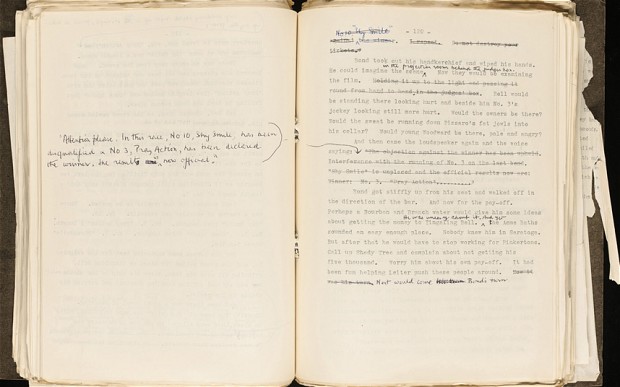 "Attention please. In this race, No 10, Shy Smile has been
disqualified and No 3, Pray Action, has been declared
the winner. The result is now official."
Now "Shy Smile"
- 120 -
the winner. I repeat. Do not destroy your
tickets.
Bond took out his handkerchief and wiped his hands.
in the projection room behind the judges' box.
He could imagine the scene. Now they would be examining
the film. Holding it up to the light and passing it
round from hand to hand in the judges' box. Bell would
be standing there looking hurt and beside him No. 3's
jockey looking still more hurt. Would the owners be there?
Would the sweat be running down Pissaro's fat jowls into
his collar? Would young Woodward be there, pale and angry?
And then came the loudspeaker again and the voice
saying: "The objection against the winner has been upheld.
Interference with the running of No. 3 on the last bend.
"Shy Smile" is unplaced and the official results now are:
Winner: No. 3, "Pray Action"..........?
Bond got stiffly up from his seat and walked off in
the direction of the bar. And now for the pay-off.
Perhaps a Bourbon and Branch water would give him some ideas
about getting the money to Tingaling Bell. The Acme Baths
sounded an easy enough place. Nobody knew him in Saratoga.
But after that he would have to stop working for Pinkertons.
Call up Shady Tree and complain about not getting his
five thousand. Worry him about his own pay-off. It had
been fun helping Leiter push these people around.
Next would come Bond's turn